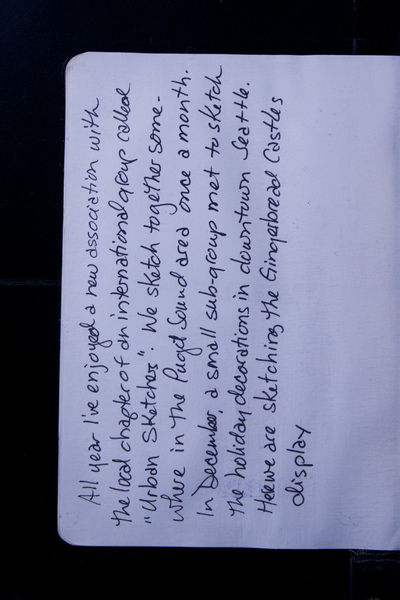 All year I've enjoyed a new association with
the local chapter of an international group called
"Urban Sketchers". We sketch together some-
where in the Puget Sound area once a month.
In December, a small sub-group met to sketch
the holiday decorations in downtown Seattle.
Here we are sketching the Gingerbread Castles
display